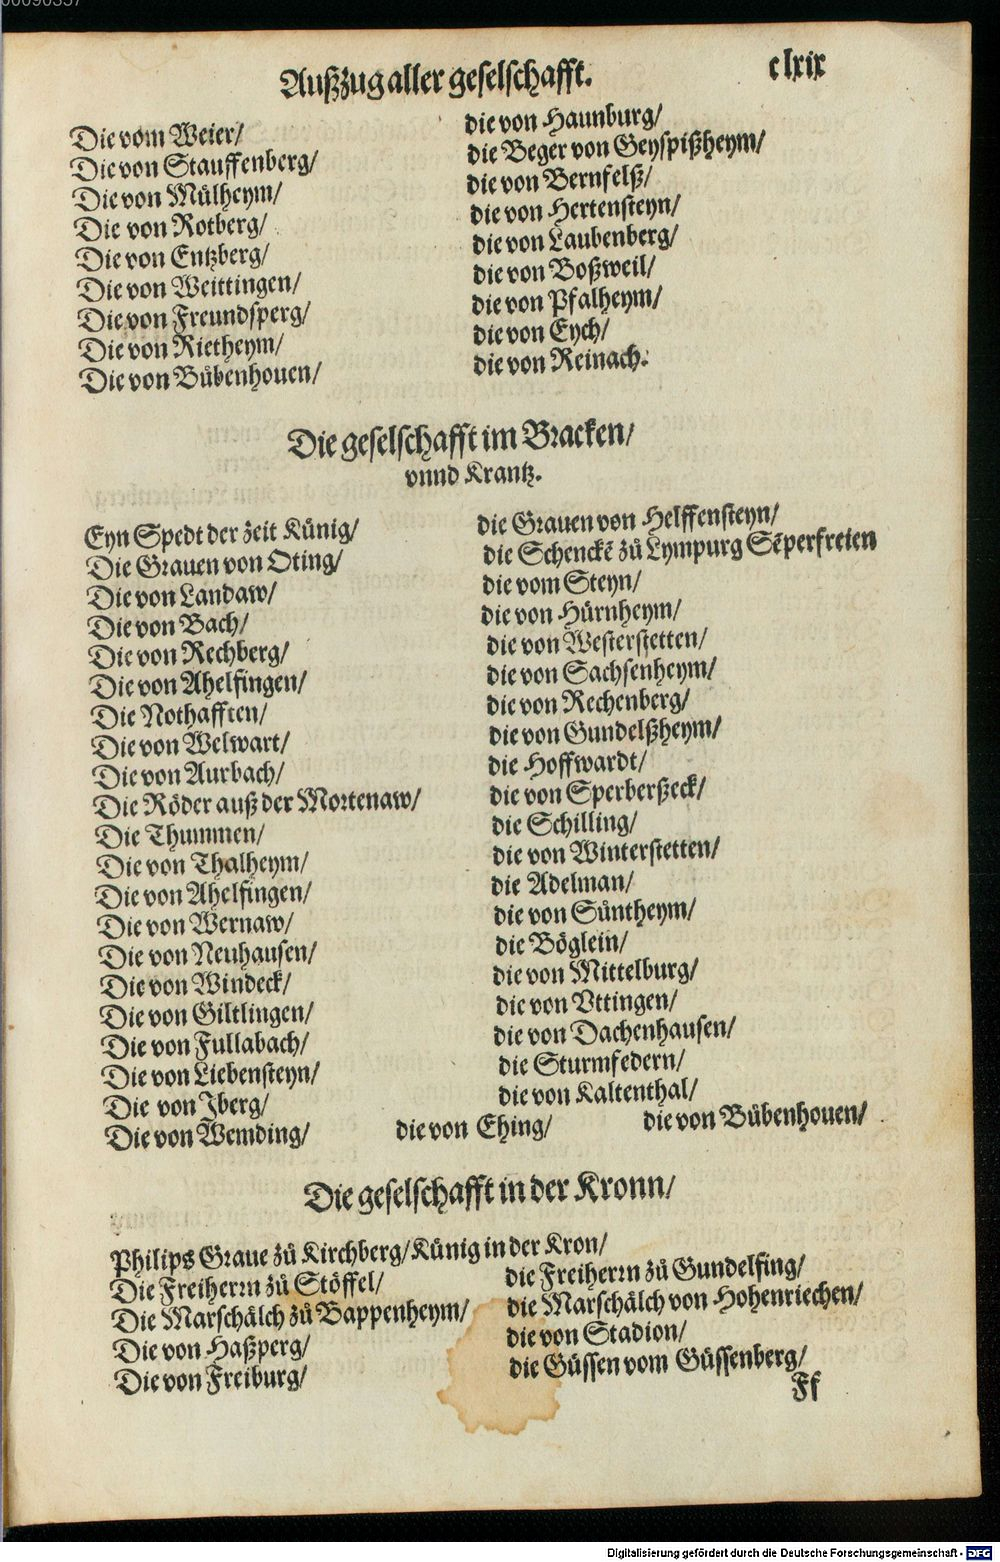 Außzug aller geselschafft. clxix
Die vom Weier/ die von Haunburg/
Die von Stauffenberg/ die Beger von Geyspißheym/
Die von Mülheym/ die von Bernfelß/
Die von Rotberg/ die von Hertensteyn/
Die von Entzberg/ die von Laubenberg/
Die von Weittingen/ die von Boßweil/
Die von Freundsperg/ die von Pfalheym/
Die von Rietheym/ die von Eych/
Die von Bůbenhouen/ die von Reinach.
Die geselschafft im Bracken/
vnnd Krantz.
Eyn Spedt der zeit Künig/ die Grauen von Helffensteyn/
Die Grauen von Oting/ die Schenckē zů Lympurg Sēperfreien
Die von Landaw/ die vom Steyn/
Die von Bach/ die von Hürnheym/
Die von Rechberg/ die von Westerstetten/
Die von Ahelfingen/ die von Sachsenheym/
Die Nothafften/ die von Rechenberg/
Die von Welwart/ die von Gundelßheym/
Die von Aurbach/ die Hoffwardt/
Die Röder auß der Mortenaw/ die von Sperberßeck/
Die Thummen/ die Schilling/
Die von Thalheym/ die von Winterstetten/
Die von Ahelfingen/ die Adelman/
Die von Wernaw/ die von Süntheym/
Die von Neuhausen/ die Böglein/
Die von Windeck/ die von Mittelburg/
Die von Giltlingen/ die von Vttingen/
Die von Fullabach/ die von Dachenhausen/
Die von Liebensteyn/ die Sturmfedern/
Die von Iberg/ die von Kaltenthal/
Die von Wemding/ die von Ehing/ die von Bůbenhouen/
Die geselschafft in der Kronn/
Philips Graue zů Kirchberg/ Künig in der Kron/
Die Freiherrn zů Stöffel/ die Freiherrn zů Gundelfing/
Die Marschälch zů Bappenheym/ die Marschälch von Hohenriechen/
Die von Haßperg/ die von Stadion/
Die von Freiburg/ die Güssen vom Güssenberg/
Ff
Digitalisierung gefördert durch die Deutsche Forschungsgemeinschaft - DFG